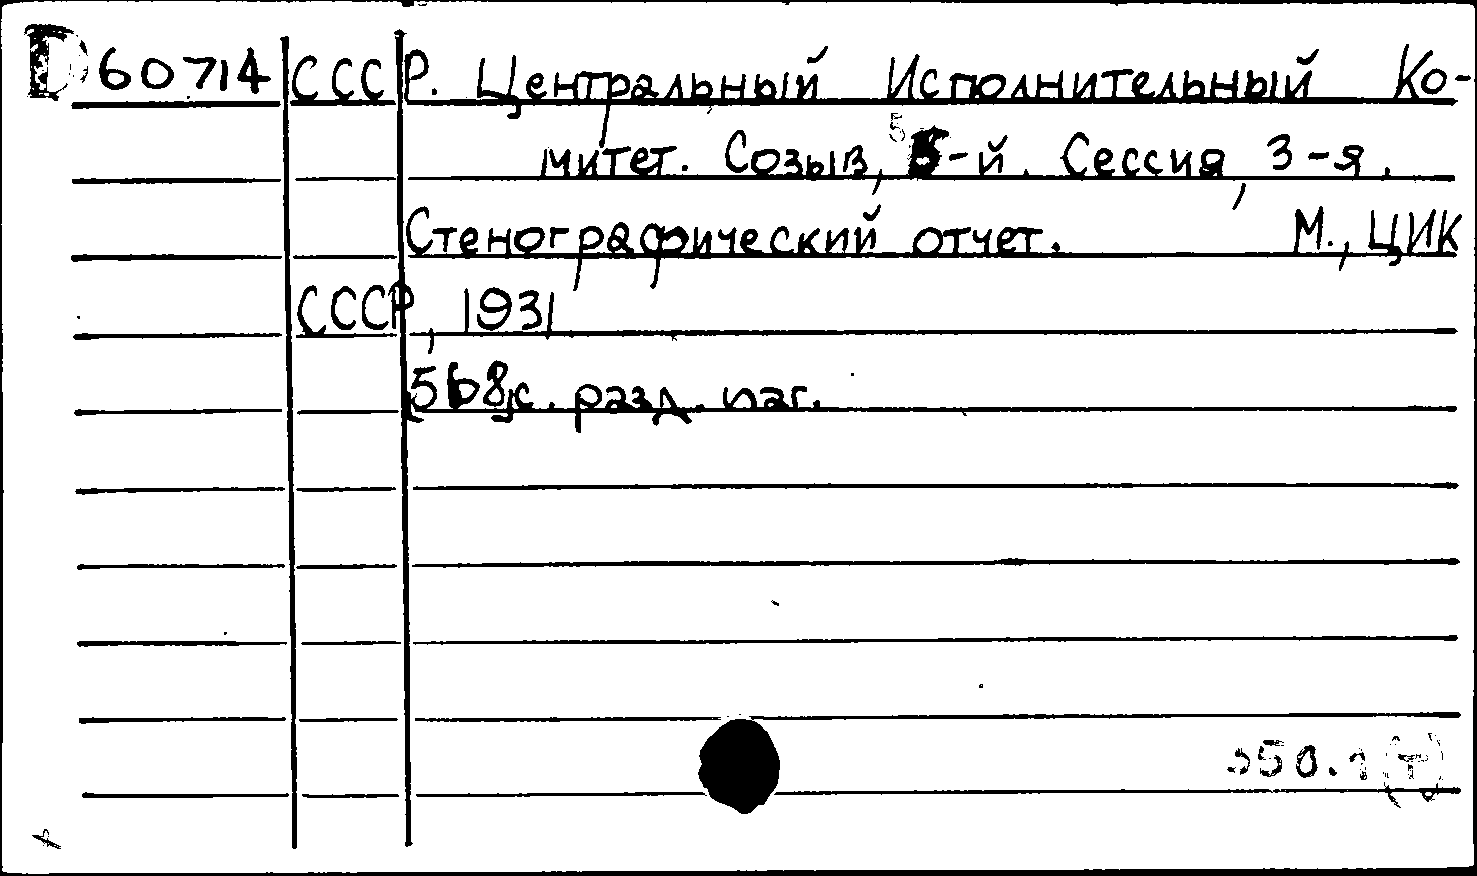 D 60714 СССР. Центральный Исполнительный Ко-
митет. Созыв, 5-й. Сессия, 3-я.
Стенографический отчет. М., ЦИК
СССР, 1931
[568]с. разд. паг.